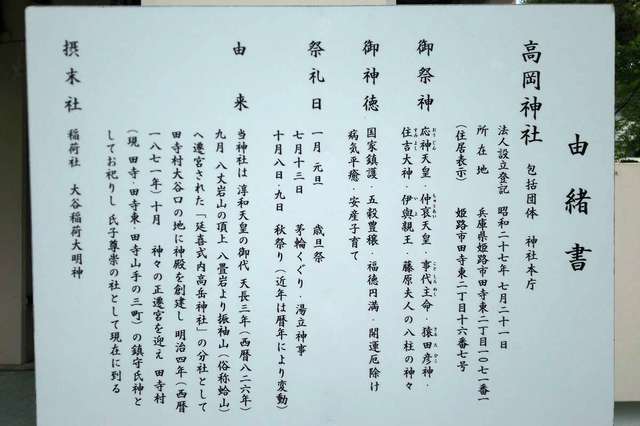 由緒書
高岡神社 包括団体 神社本庁
法人設立登記 昭和二十七年 七月二十一日
所在地 兵庫県姫路市田寺東二丁目一〇七一番一
(住居表示) 姫路市田寺東二丁目十六番七号
御祭神 応神天皇・仲哀天皇・事代主命・猿田彦神・
住吉大神・伊與親王・藤原夫人の八柱の神々
御神徳 国家鎮護・五穀豊穣・福徳円満・開運厄除け
病気平癒・安産子育て
祭礼日 一月 元旦 歳旦祭
七月十三日 茅輪くぐり・湯立神事
十月八日・九日 秋祭り(近年は暦年により変動)
由来 当神社は 淳和天皇の御代 天長三年(西暦八二六年)
九月 八丈岩山の頂上 八畳岩より振袖山(俗称蛤山)
へ遷宮された「延喜式内高岳神社」の分社として
田寺村大谷口の地に神殿を創建し 明治四年(西暦
一八七一年)十月 神々の正遷宮を迎え 田寺村
(現 田寺・田寺東・田寺山手の三町)の鎮守氏神と
してお祀りし 氏子尊崇の社として現在に到る
摂末社 稲荷社 大谷稲荷大明神